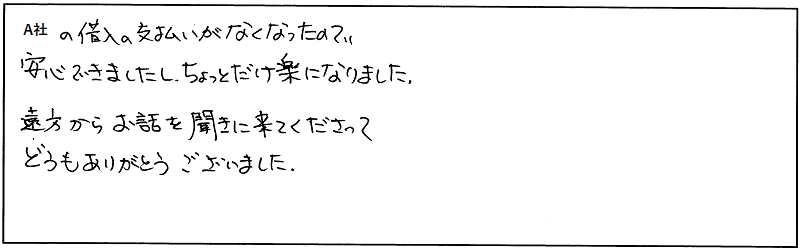 A社の借入の支払いがなくなったので、
安心できましたし、ちょっとだけ楽になりました。
遠方からお話を聞きに来てくださって
どうもありがとうございました。